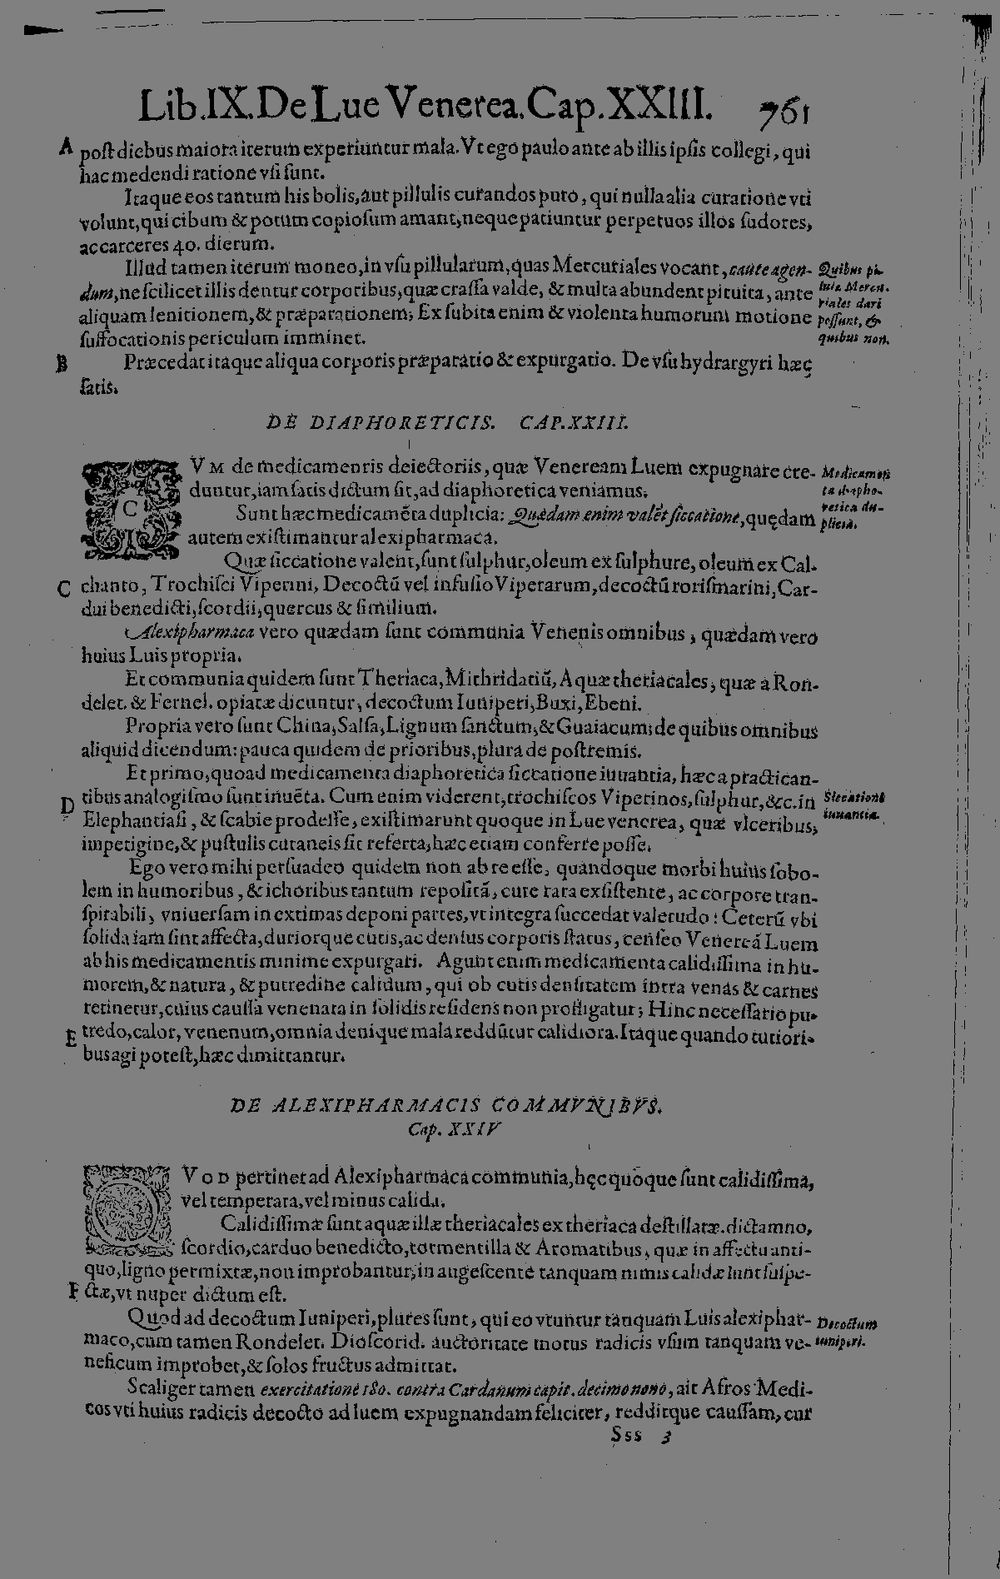 Lib.IX.De Lue Venerea.Cap.XXIII. 761
A post diebus maiora iterum experiuntur mala. Vt ego paulo ante ab illis ipsis collegi, qui
hac medendi ratione vsi sunt.
Itaque eos tantum his bolis, aut pillulis curandos puto, qui nulla alia curatione vti
volunt, qui cibum & potum copiosum amant, neque patiuntur perpetuos illos sudores,
ac carceres 40. dierum.
Illud tamen iterum moneo, in vsu pillularum, quas Mercuriales vocant, caute agen-
dum, ne scilicet illis dentur corporibus, quæ crassa valde, & multa abundent pituita, ante
aliquam lenitionem, & præparationem; Ex subita enim & violenta humorum motione
suffocationis periculum imminet.
Quibus pi-
lulæ Mercu-
riales dari
possunt, &
quibus non.
B Præcedat itaque aliqua corporis præparatio & expurgatio. De vsu hydrargyri hæc
satis.
DE DIAPHORETICIS. CAP.XXIII.
CVM de medicamentis deiectoriis, quæ Veneream Luem expugnare cre-
duntur, iam satis dictum sit, ad diaphoretica veniamus.
Sunt hæc medicamēta duplicia: Quædam enim valēt siccatione, quędam
autem existimantur alexipharmaca.
Medicamen
ta diapho-
retica du-
plicia.
Quæ siccatione valent, sunt sulphur, oleum ex sulphure, oleum ex Cal-
C chanto, Trochisci Viperini, Decoctū vel infusio Viperarum, decoctū rorismarini, Car-
dui benedicti, scordii, quercus & similium.
Alexipharmaca vero quædam sunt communia Venenis omnibus, quædam vero
huius Luis propria.
Et communia quidem sunt Theriaca, Mithridatiū, Aquæ theriacales, quæ a Ron-
delet. & Fernel. opiatæ dicuntur, decoctum Iuniperi, Buxi, Ebeni.
Propria vero sunt China, Salsa, Lignum sanctum, & Guaiacum: de quibus omnibus
aliquid dicendum: pauca quidem de prioribus, plura de postremis.
Et primo, quoad medicamenta diaphoretica siccatione iuuantia, hæc a practican-
D tibus analogismo sunt inuēta. Cum enim viderent, trochiscos Viperinos, sulphur, &c. in
Elephantiasi, & scabie prodesse, existimarunt quoque in Lue venerea, quæ vlceribus,
impetigine, & pustulis cutaneis sit referta, hæc etiam conferre posse.
Siccatione
iuuantia.
Ego vero mihi persuadeo quidem non ab re esse, quandoque morbi huius sobo-
lem in humoribus, & ichoribus tantum repositā, cute rara existente, ac corpore tran-
spirabili, vniuersam in extimas deponi partes, vt integra succedat valetudo: Ceterū vbi
solida iam sint affecta, duriorque cutis, ac densus corporis status, censeo Venereā Luem
ab his medicamentis minime expurgari. Agunt enim medicamenta calidissima in hu-
morem, & natura, & putredine calidum, qui ob cutis densitatem intra venas & carnes
retinetur, cuius caussa venenata in solidis residens non profligatur; Hinc necessario pu-
E tredo, calor, venenum, omnia denique mala reddūtur calidiora. Itaque quando tutiori-
bus agi potest, hæc dimittantur.
DE ALEXIPHARMACIS COMMVNIBVS.
Cap. XXIV
QVOD pertinet ad Alexipharmaca communia, hęc quoque sunt calidissima,
vel temperata, vel minus calida.
Calidissimæ sunt aquæ illæ theriacales ex theriaca destillatæ, dictamno,
scordio, carduo benedicto, tormentilla & Aromatibus, quæ in affectu anti-
quo, ligno permixtæ, non improbantur, in augescente tanquam nimis calidæ sunt suspe-
F ctæ, vt nuper dictum est.
Quod ad decoctum Iuniperi, plures sunt, qui eo vtuntur tanquam Luis alexiphar-
maco, cum tamen Rondelet. Dioscorid. auctoritate motus radicis vsum tanquam ve-
neficum improbet, & solos fructus admittat.
Decoctum
iuniperi.
Scaliger tamen exercitatione 180. contra Cardanum capit. decimonono, ait Afros Medi-
cos vti huius radicis decocto ad luem expugnandam feliciter, redditque caussam, cur
Sss 3